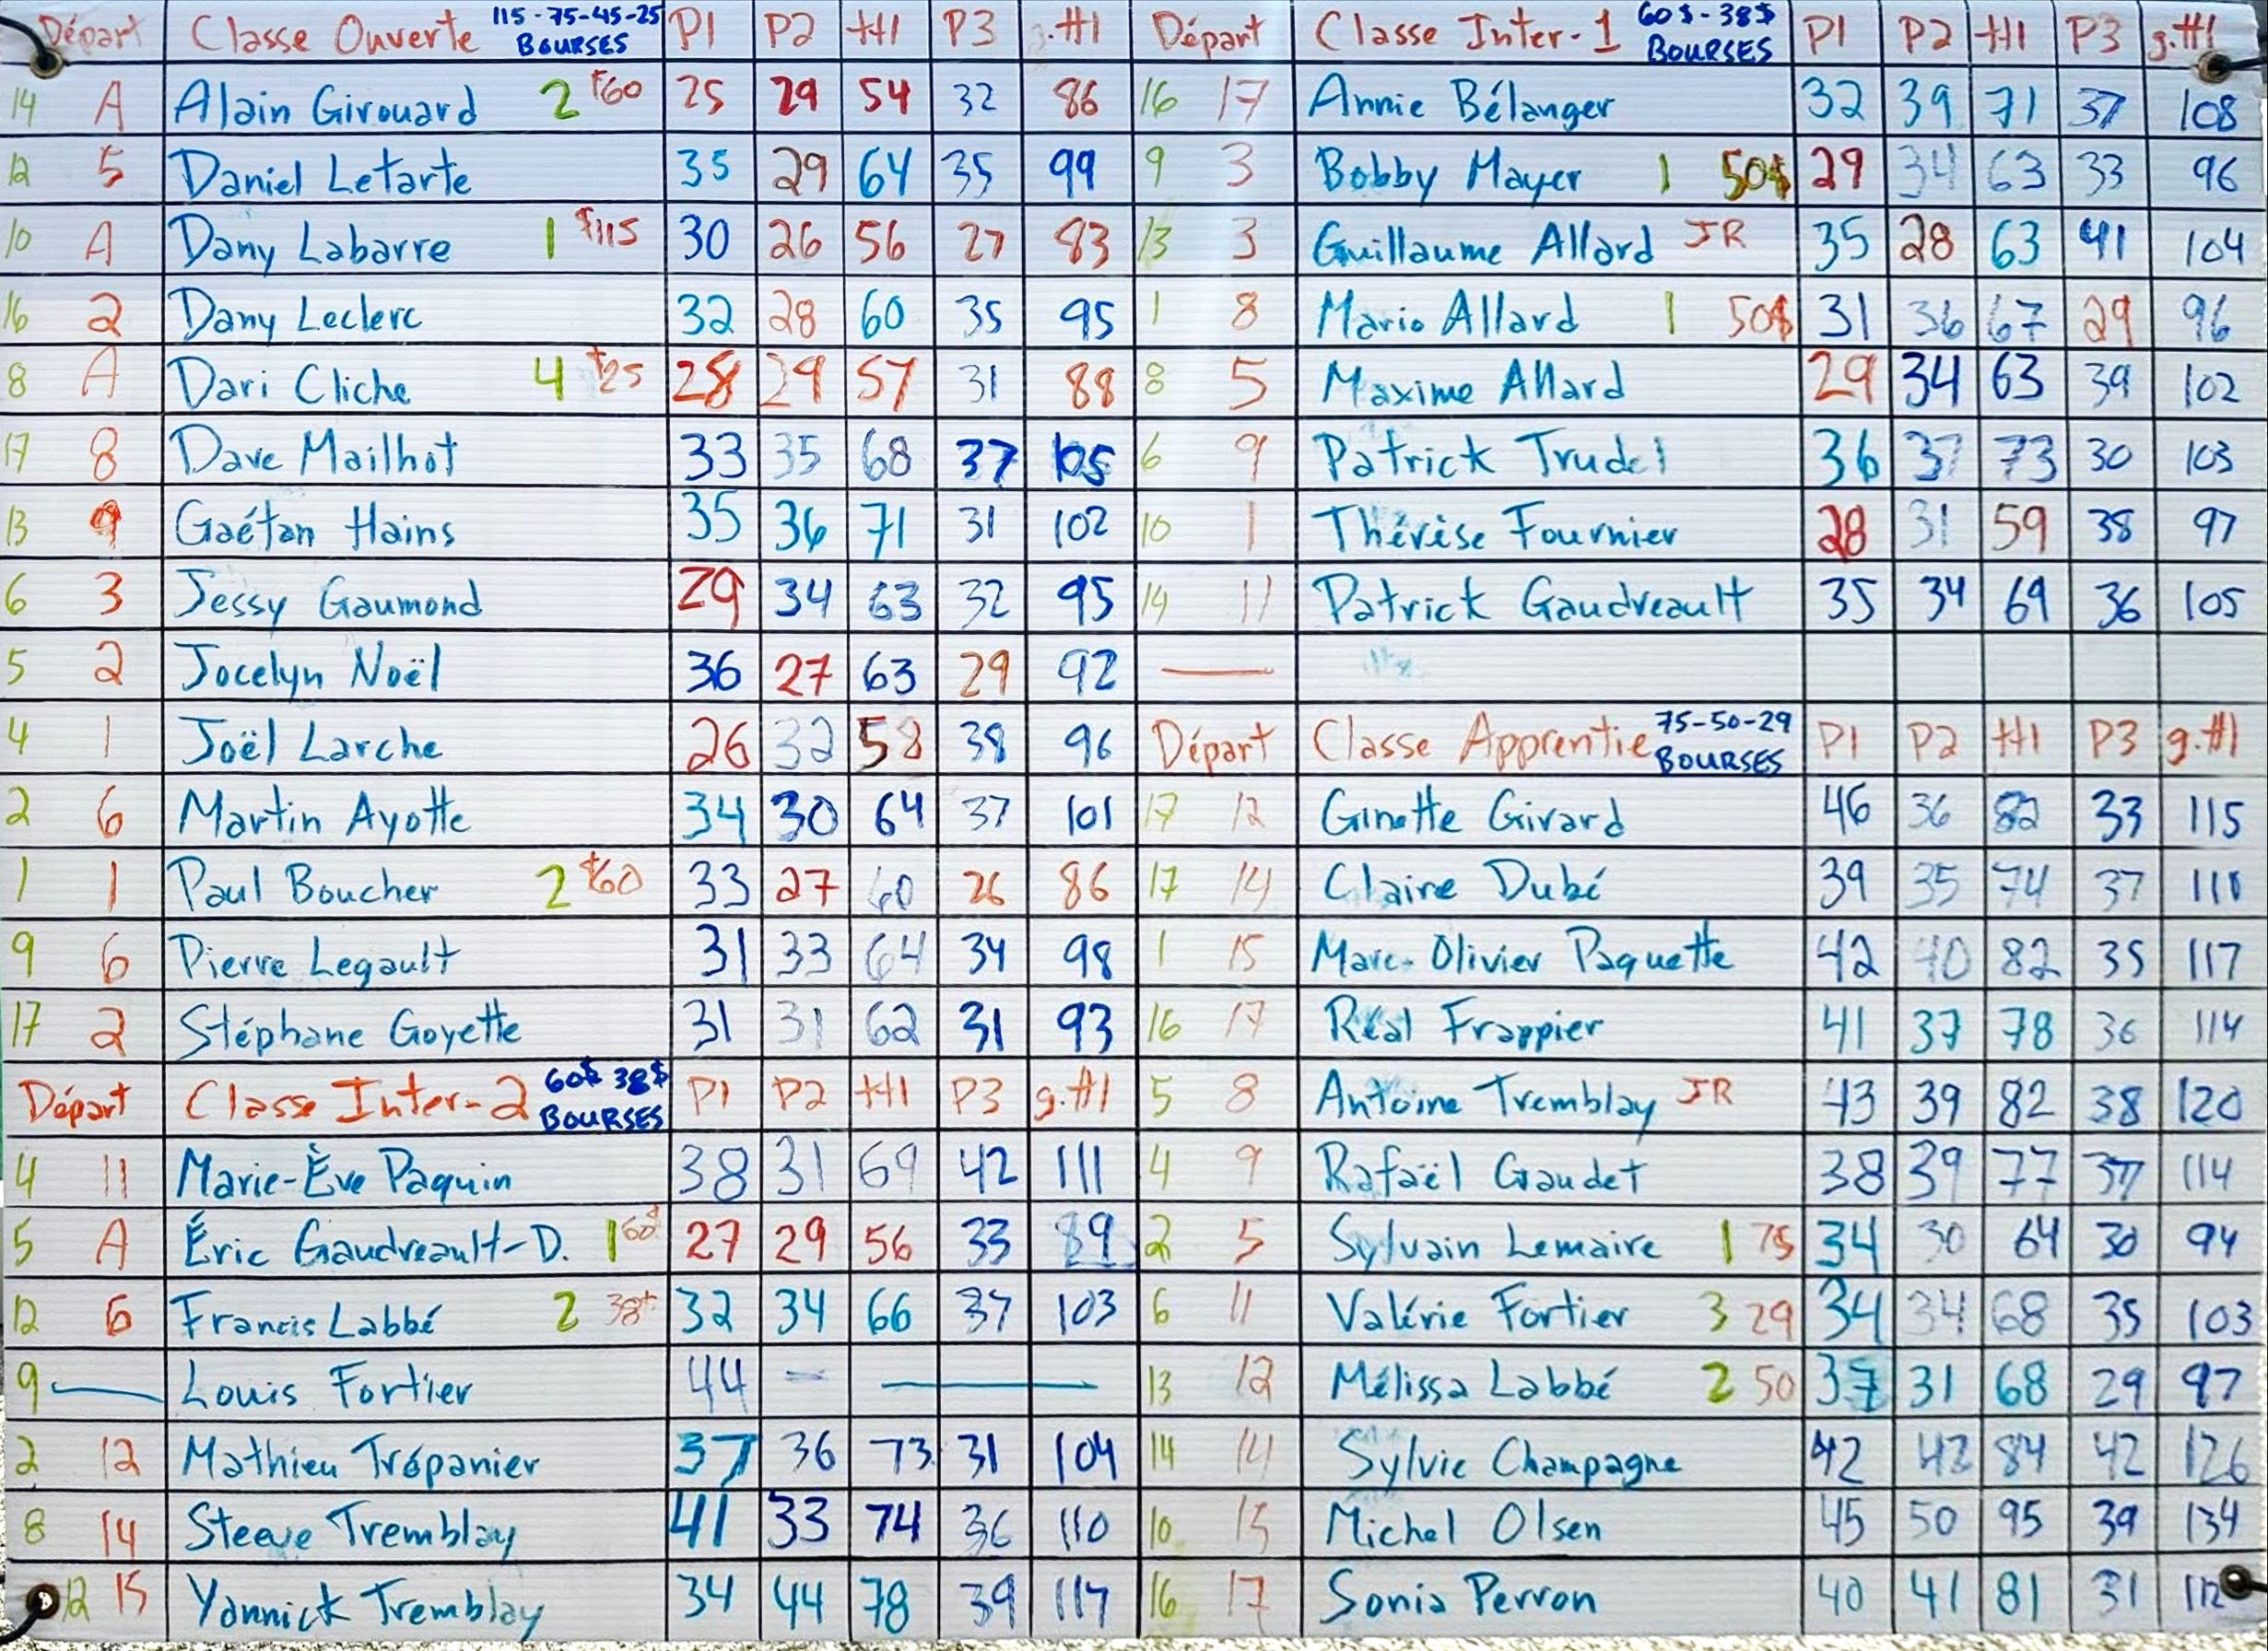 Départ Classe Ouverte 115-75-45-25 BOURSES P1 P2 ++1 P3 g.++1
14 A Alain Girouard 2 $60 25 29 54 32 86
12 5 Daniel Letarte 35 29 64 35 99
10 A Dany Labarre 1 $115 30 26 56 27 83
16 2 Dany Leclerc 32 28 60 35 95
8 A Dari Cliche 4 $25 28 29 57 31 88
17 8 Dave Mailhot 33 35 68 37 105
13 9 Gaétan Hains 35 36 71 31 102
6 3 Jessy Gaumond 29 34 63 32 95
5 2 Jocelyn Noël 36 27 63 29 92
4 1 Joël Larche 26 32 58 38 96
2 6 Martin Ayotte 34 30 64 37 101
1 1 Paul Boucher 2 $60 33 27 60 26 86
9 6 Pierre Legault 31 33 64 34 98
17 2 Stéphane Goyette 31 31 62 31 93
Départ Classe Inter-2 60$ 38$ BOURSES P1 P2 ++1 P3 g.++1
4 11 Marie-Ève Paquin 38 31 69 42 111
5 A Éric Gaudreault-D. 1 60$ 27 29 56 33 89
12 6 Francis Labbé 2 38$ 32 34 66 37 103
9 — Louis Fortier 44 — —
2 12 Mathieu Trépanier 37 36 73 31 104
8 14 Steeve Tremblay 41 33 74 36 110
12 15 Yannick Tremblay 34 44 78 39 117
Départ Classe Inter-1 60$-38$ BOURSES P1 P2 ++1 P3 g.++1
16 17 Annie Bélanger 32 39 71 37 108
9 3 Bobby Mayer 1 50$ 29 34 63 33 96
13 3 Guillaume Allard JR 35 28 63 41 104
1 8 Mario Allard 1 50$ 31 36 67 29 96
8 5 Maxime Allard 29 34 63 39 102
6 9 Patrick Trudel 36 37 73 30 103
10 1 Thérèse Fournier 28 31 59 38 97
14 11 Patrick Gaudreault 35 34 69 36 105
—
Départ Classe Apprentie 75-50-29 BOURSES P1 P2 ++1 P3 g.++1
17 12 Ginette Girard 46 36 82 33 115
17 14 Claire Dubé 39 35 74 37 111
1 15 Marc-Olivier Paquette 42 40 82 35 117
16 17 Réal Frappier 41 37 78 36 114
5 8 Antoine Tremblay JR 43 39 82 38 120
4 9 Rafaël Gaudet 38 39 77 37 114
2 5 Sylvain Lemaire 1 75 34 30 64 30 94
6 11 Valérie Fortier 3 29 34 34 68 35 103
13 12 Mélissa Labbé 2 50 37 31 68 29 97
14 14 Sylvie Champagne 42 42 84 42 126
10 15 Michel Olsen 45 50 95 39 134
16 17 Sonia Perron 40 41 81 31 112